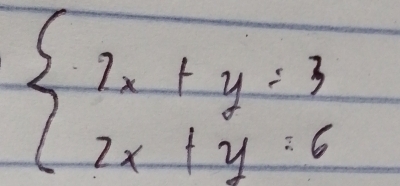 7x + y = 3
2x + y = 6